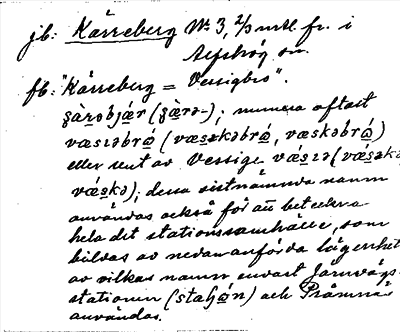 jb: Kärreberg No 3, 2/3 mtl. fr. i
sn.
fb: "Kärreberg = Vessigbro".
ʂàrəbjær (ʂærə-); numera oftast
væsɪəbrǫ́ (væsəkəbrǫ́, væskəbrǫ́)
eller rent av Vessige vǽsɪə (vǽsəkə
vǽskə); dessa sistnämnda namn
användas också för att beteckna
hela det stationssamhälle, som
bildas av nedanförda lägenheter
av vilkas namn endast Järnvägs-
stationen (staʃǫ́n) och Prämnäs
användas.